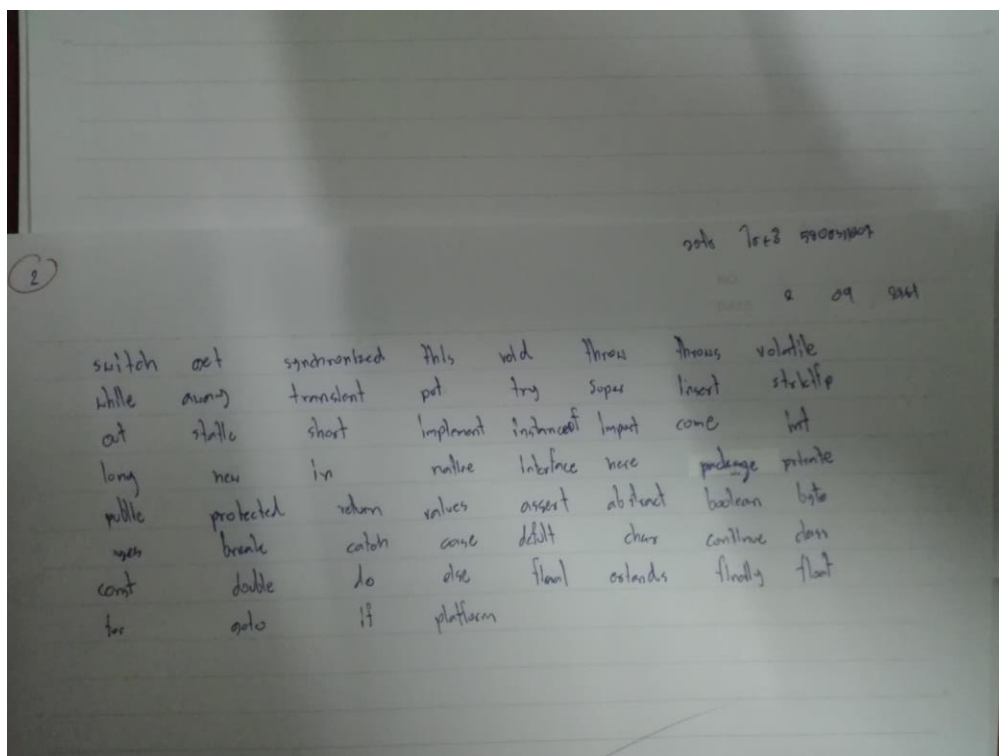 2
09
switch get synchronized this void throw throws volatile
while away transient put try super insert strictfp
out static short implement instanceof import come int
long new in native interface here package private
public protected return values assert abstract boolean byte
yes break catch case defult char continue class
const double do else final extends finally float
for goto if platform